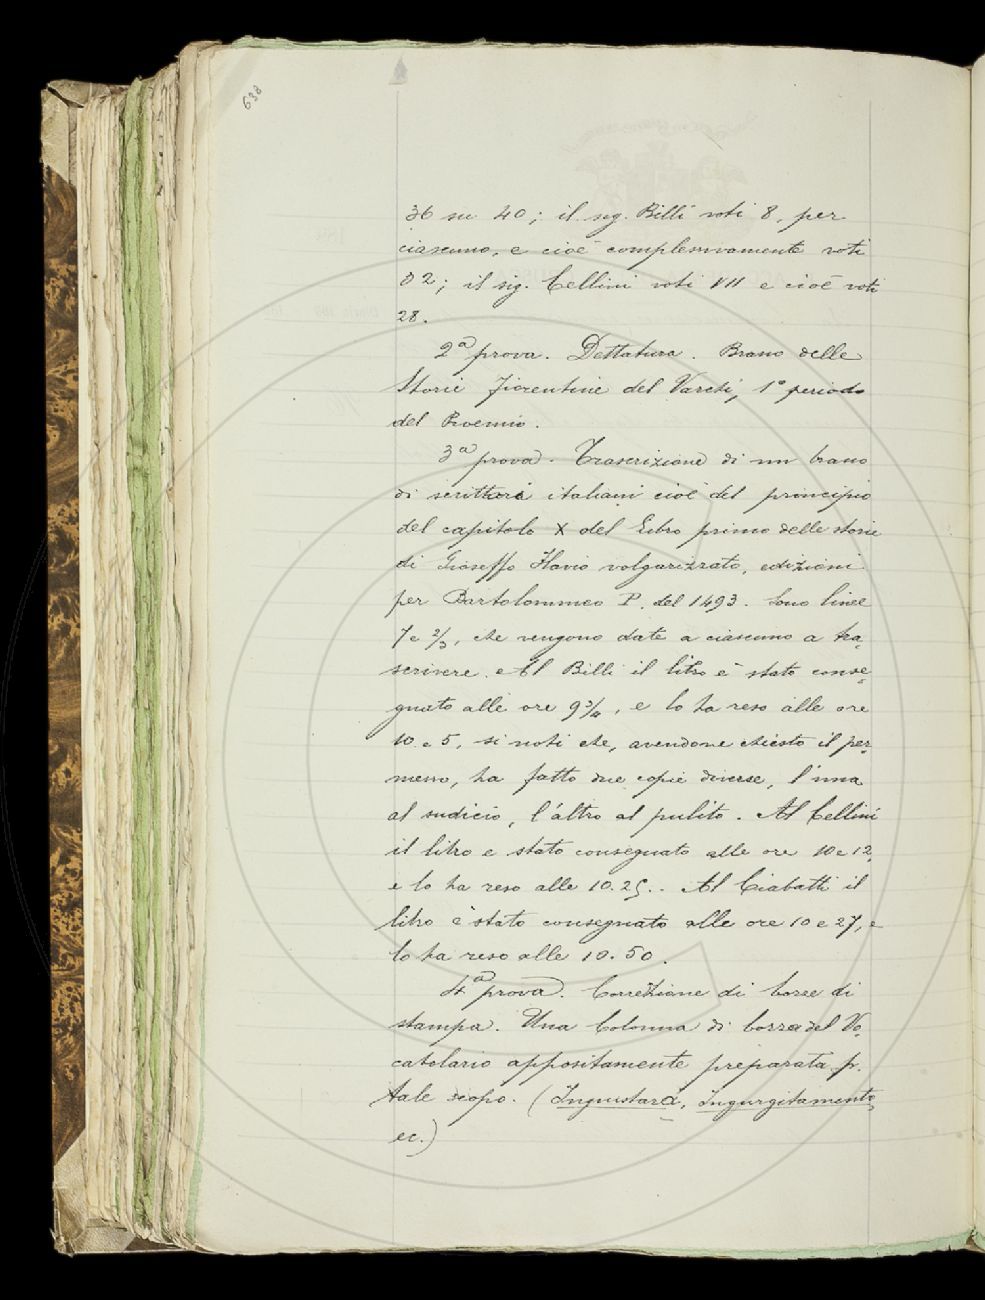 638
36 su 40; il sig. Billi voti 8, per
ciascuno, e cioè complessivamente voti
32; il sig. Cellini voti VII e cioè voti
28.
2ª prova. Dettatura. Brano delle
Storie fiorentine del Varchi, 1° periodo
del Proemio.
3ª prova. Trascrizione di un brano
di scrittori italiani cioè del principio
del capitolo X del Libro primo delle storie
di Gioseffo Flavio volgarizzato, edizioni
per Bartolommeo P. del 1493. Sono linee
7 e 2/3, che vengono date a ciascuno a tra=
scrivere. Al Billi il libro è stato conse=
gnato alle ore 9 3/4, e lo ha reso alle ore
10 e 5, si noti che, avendone chiesto il per=
messo, ha fatto due copie diverse, l'una
al sudicio, l'altro al pulito. Al Cellini
il libro e stato consegnato alle ore 10 e 12,
e lo ha reso alle 10.25.. Al Ciabatti il
libro è stato consegnato alle ore 10 e 27, e
lo ha reso alle 10.50.
4ª prova. Correzione di bozze di
stampa. Una Colonna di bozze del Vo=
cabolario appositamente preparata p.
tale scopo. (Ingiustare, Ingurgitamento,
ec.)